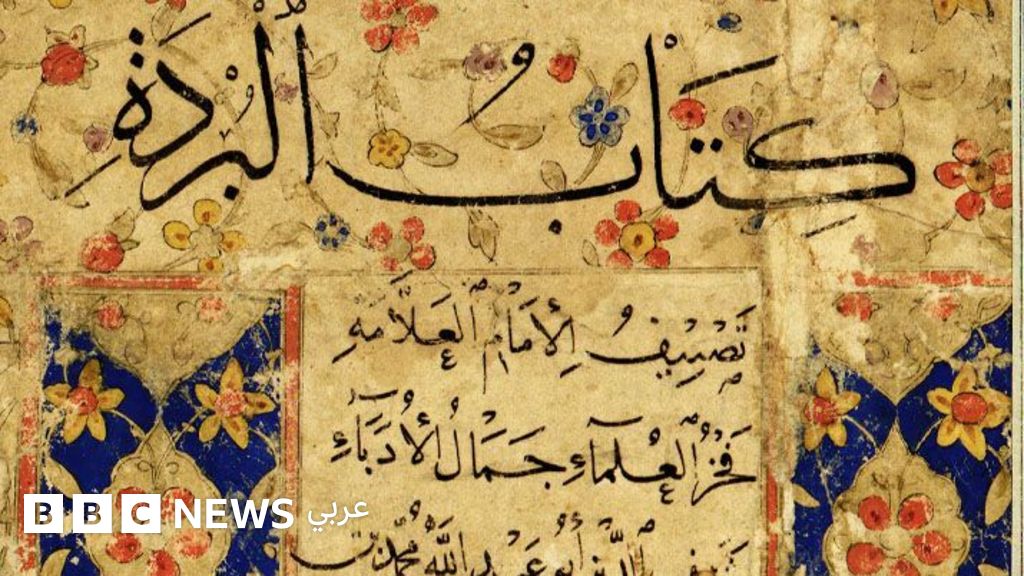 كِتَابُ الْبُرْدَةِ
تَصْنِيفُ الْإِمَامِ الْعَلَّامَةِ
فَخْرُ الْعُلَمَاءِ جَمَالُ الْأُدَبَاءِ
شرف الدين أبو عبد الله محمد بن
BBC NEWS عربي